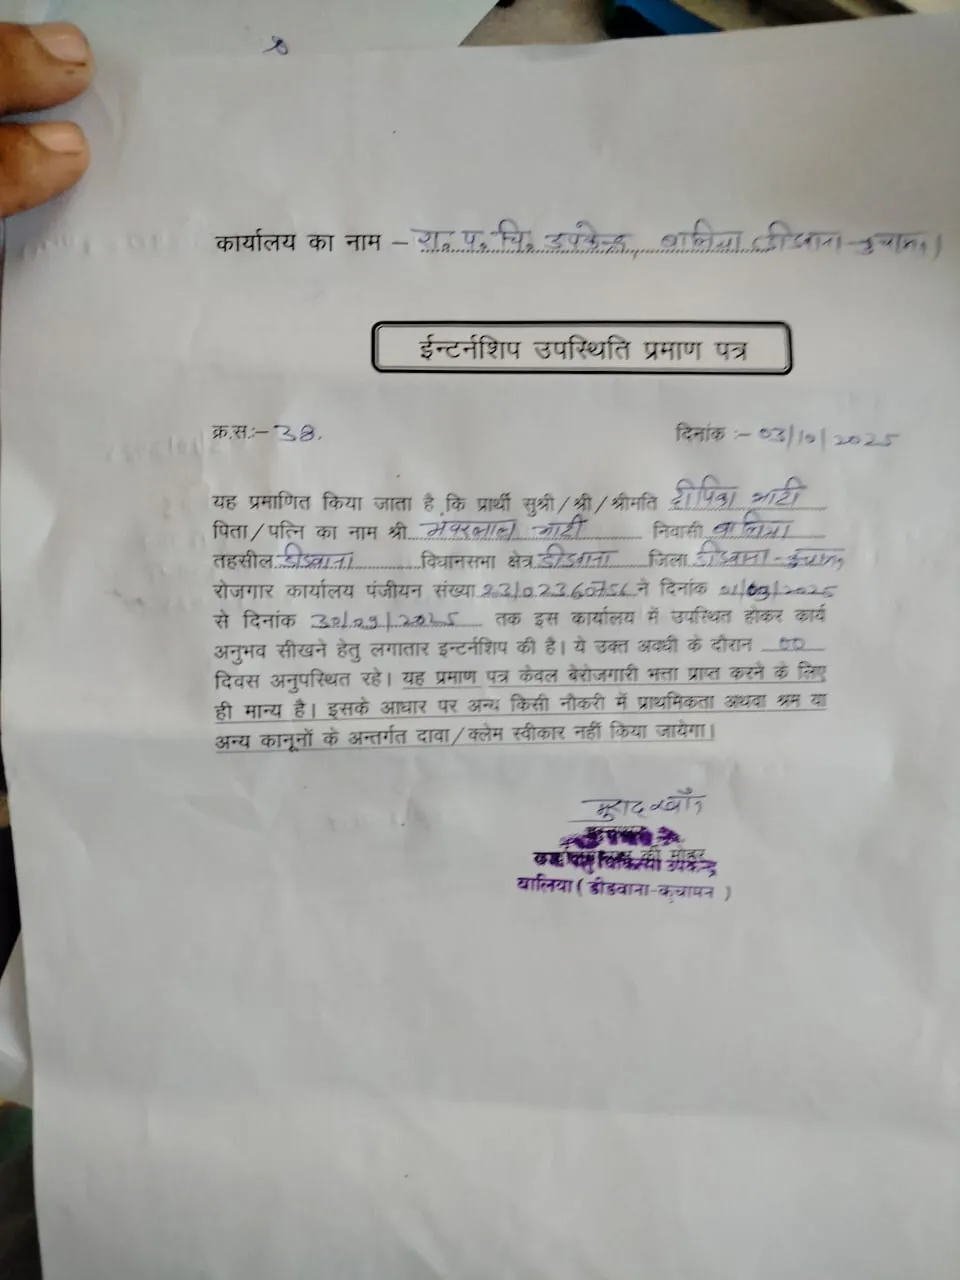 कार्यालय का नाम – रा. प. चि. उपकेन्द्र, थालिया (डीडवाना-कुचामन)
ईन्टर्नशिप उपस्थिति प्रमाण पत्र
क्र.स:– 38. दिनांक :– 03/10/2025
यह प्रमाणित किया जाता है कि प्रार्थी सुश्री/श्री/श्रीमति दीपिका भाटी
पिता/पत्नि का नाम श्री भंवरलाल भाटी निवासी थालिया
तहसील डीडवाना विधानसभा क्षेत्र डीडवाना जिला डीडवाना-कुचामन
रोजगार कार्यालय पंजीयन संख्या 23/02360756 ने दिनांक 01/09/2025
से दिनांक 30/09/2025 तक इस कार्यालय में उपस्थित होकर कार्य
अनुभव सीखने हेतु लगातार इन्टर्नशिप की है। ये उक्त अवधी के दौरान 00
दिवस अनुपस्थित रहे। यह प्रमाण पत्र केवल बेरोजगारी भत्ता प्राप्त करने के लिए
ही मान्य है। इसके आधार पर अन्य किसी नौकरी में प्राथमिकता अथवा श्रम या
अन्य कानूनों के अन्तर्गत दावा/क्लेम स्वीकार नहीं किया जायेगा।
मुराद खाँ
की मोहर
चिकित्सा उपकेन्द्र
थालिया (डीडवाना-कुचामन)